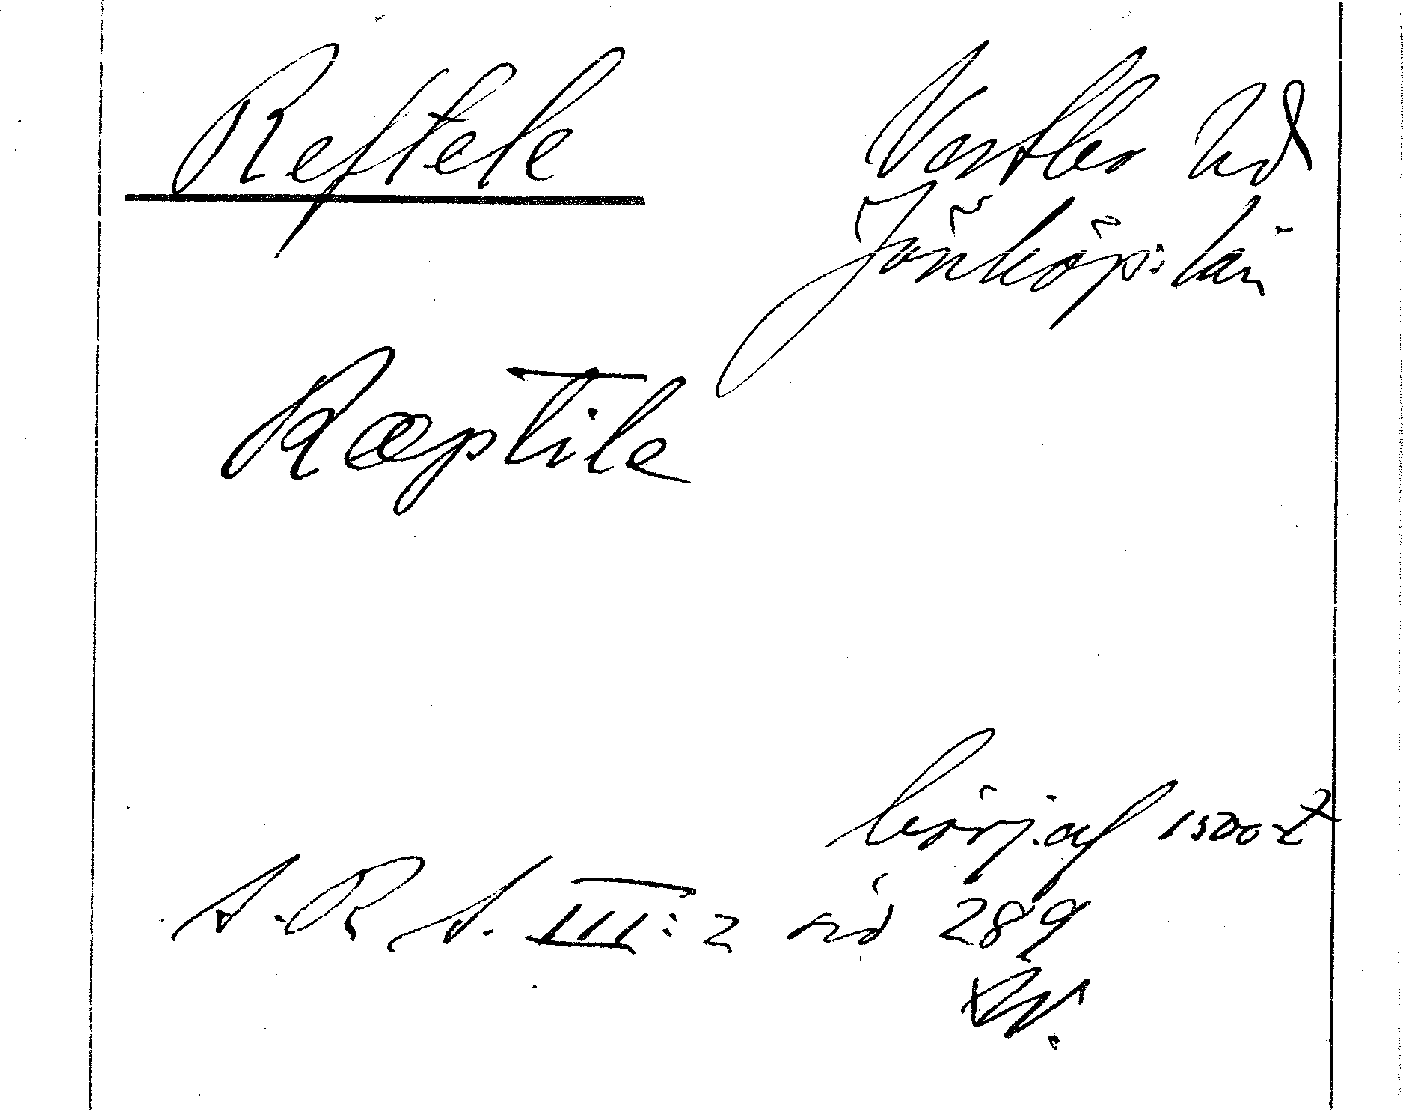 Reftele
Vestbo hd
Jönköp:s län
Ræptile
börj. af 1500-t
S. R. S. III: 2 sid 289